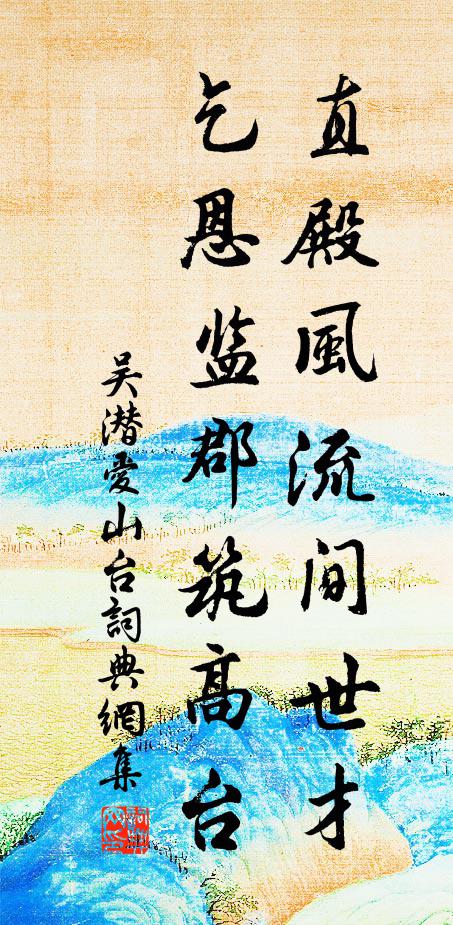 直殿風流间世才
乞恩监郡筑高台
吴潜爱山台詞典網集